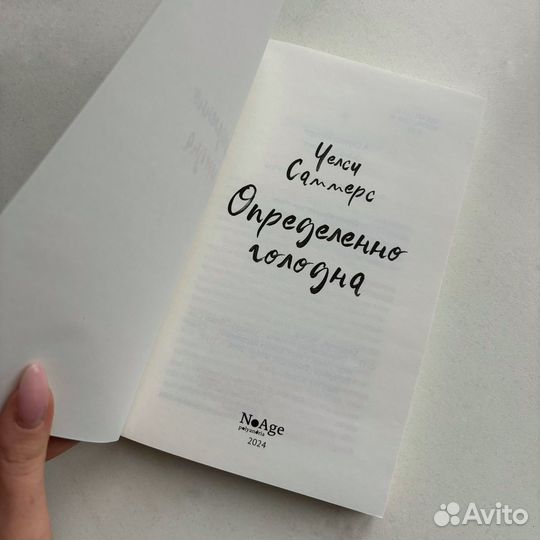 Челси
Саммерс
Определенно
голодна
NoAge
polyandria
2024
Avito